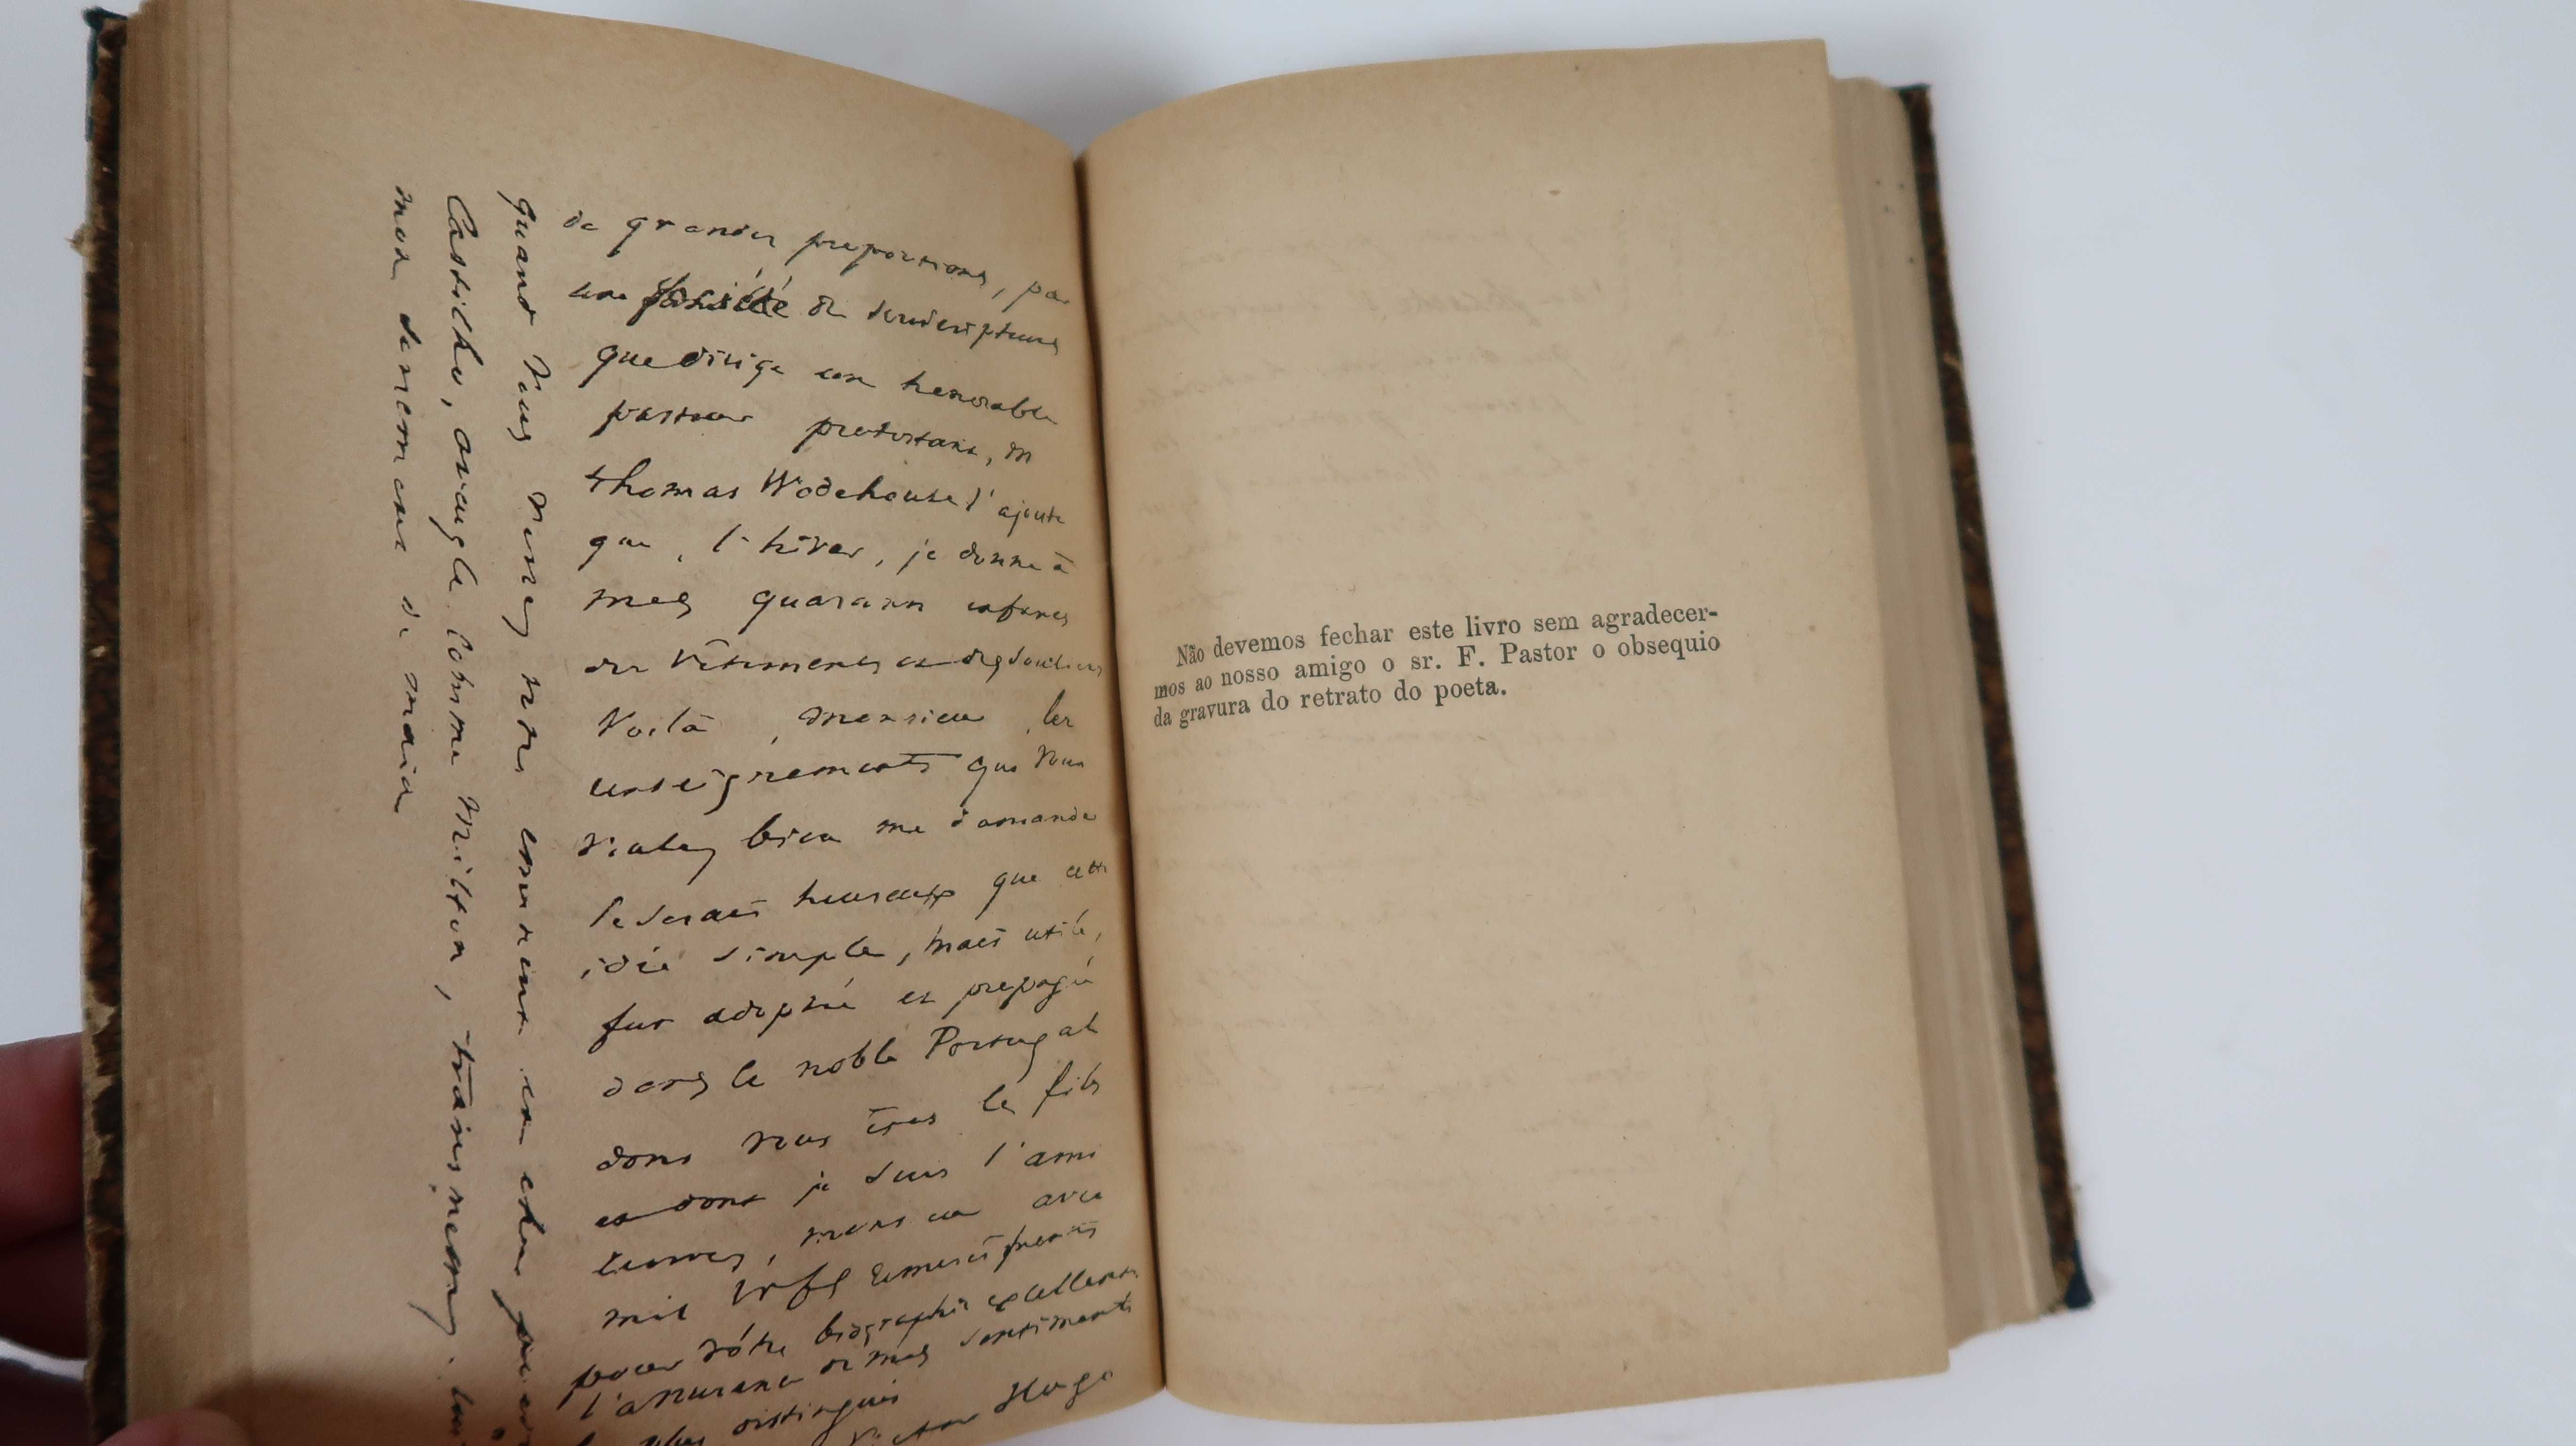 de grandes proportions, par
une société de souscripteurs
que dirige un honorable
pasteur protestant, M
Thomas Wodehouse J'ajoute
que, l'hiver, je donne à
mes quarante enfants
des vêtements et des souliers
Voilà, monsieur les
enseignements que vous
voulez bien me demander
Je serais heureux que cette
idée simple, mais utile,
fut adoptée et propagée
dans le noble Portugal
dont vous êtes le fils
et dont je suis l'ami
monsieur avec
mil remerciements
pour vôtre biographie excellente
l'assurance de mes sentiments
plus distingués
Victor Hugo
quand vous verrez votre éminent
Castilho, aveugle comme Milton, transmettez
mon serrement de main
Não devemos fechar este livro sem agradecer-
mos ao nosso amigo o sr. F. Pastor o obsequio
da gravura do retrato do poeta.